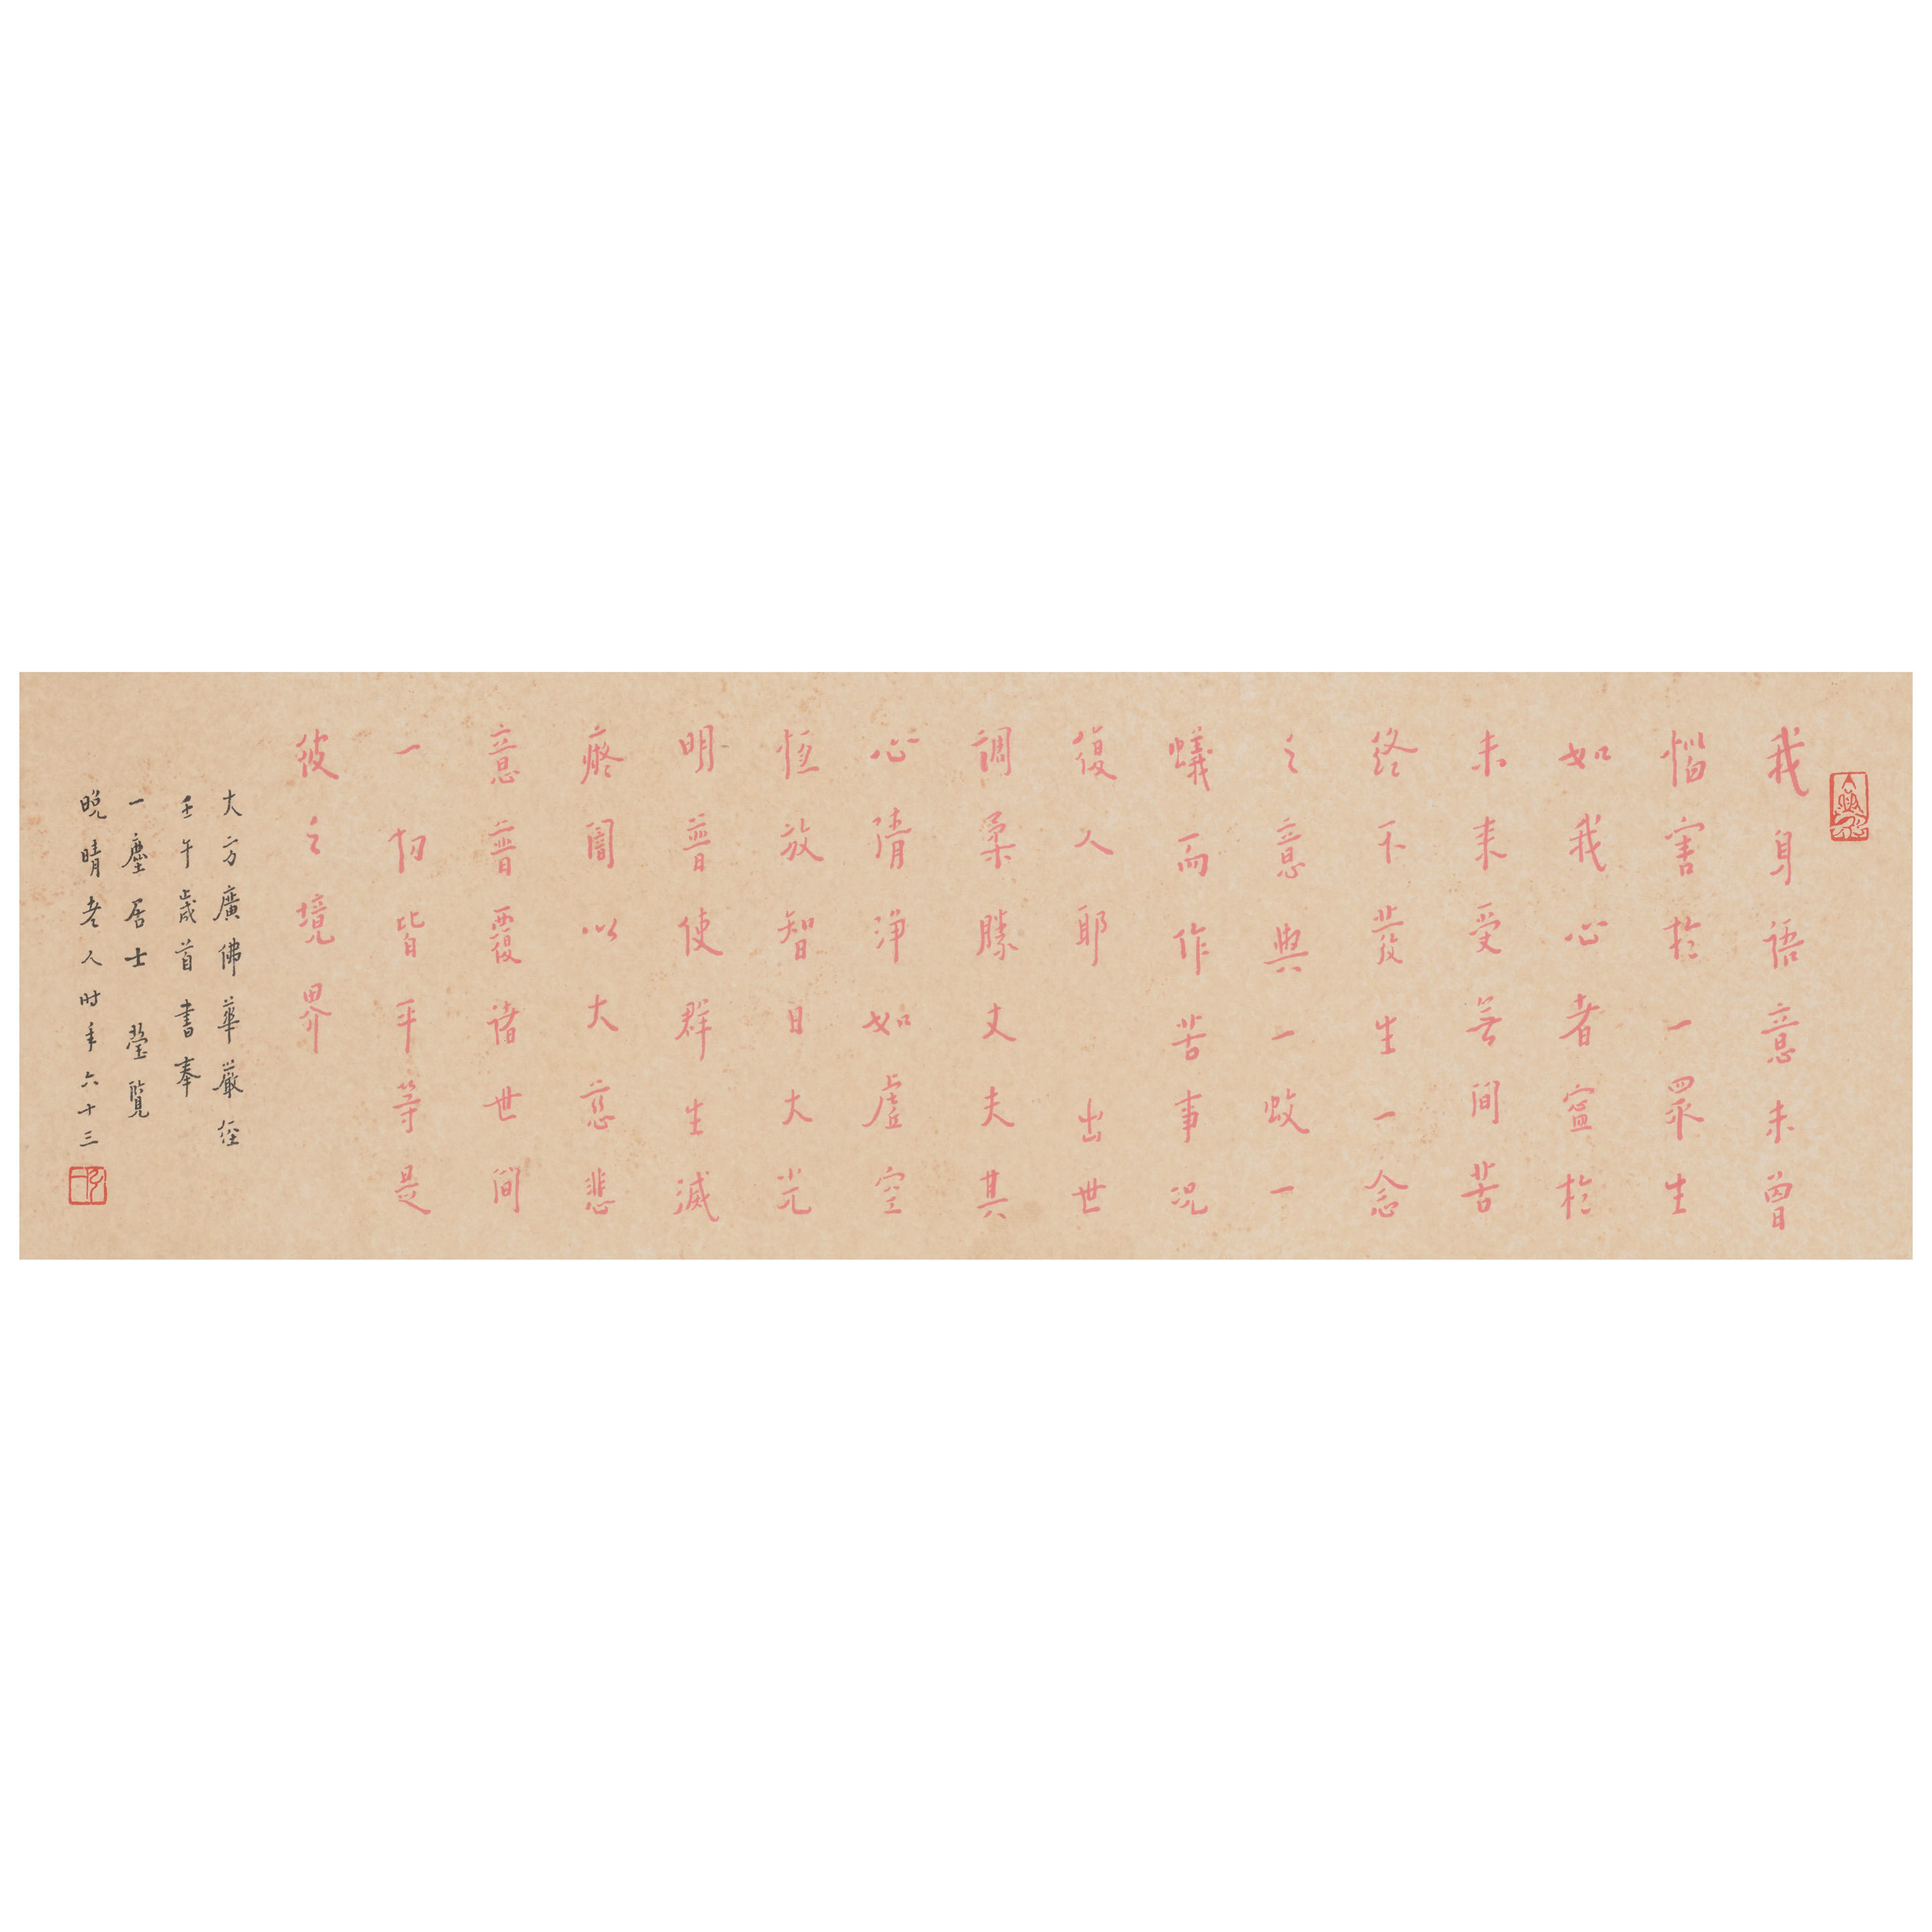 我身語意未曾
惱害於一眾生
如我心者寧於
未來受無間苦
終不發生一念
之意與一蚊一
蟻而作苦事況
復人耶 出世
調柔勝丈夫其
心清淨如虛空
恆放智日大光
明普使群生滅
癡闇以大慈悲
意普覆諸世間
一切皆平等是
彼之境界
大方廣佛華嚴經
壬午歲首書奉
一塵居士 瑩覽
晚晴老人时年六十三